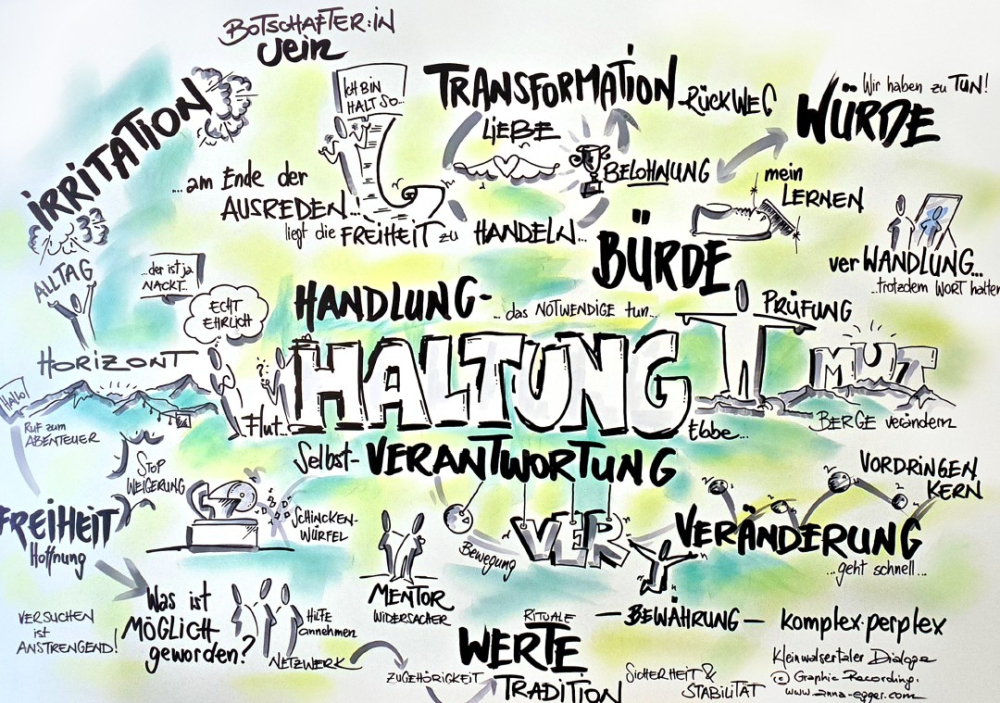 BOTSCHAFTER:iN
Jein
iCH BiN
HALT SO...
TRANSFORMATION
RÜCKWEG
Wir haben zu TUN!
WÜRDE
IRRITATION
LiEBE
BELOHNUNG
mein
LERNEN
...am Ende der
AUSREDEN...
liegt die FREIHEIT zu HANDELN...
BÜRDE
ver WANDLUNG...
...trotzdem WORT halten
ALLTAG
...der ist ja
NACKT...
ECHT
EHRLiCH
HANDLUNG-
...das NOTWENDIGE tun...
PRÜFUNG
HORiZONT
HALTUNG
MUT
HALLO!
Flut...
Ebbe...
BERGE verändern
RuF zum
ABENTEUER
Selbst-VERANTWORTUNG
STOP
WEiGERUNG
VORDRiNGEN
KERN
FREIHEIT
Hoffnung
SCHiNCKEN-
WÜRFEL
Bewegung
VER
VERÄNDERUNG
...geht schnell...
Was ist
MÖGLICH
geworden?
MENTOR
WiDERSACHER
VERSUCHEN
iST
ANSTRENGEND!
HiLFE
annehmen
NETZWERK
RiTUALE
— BEWÄHRUNG —
komplex·perplex
WERTE
TRADITION
ZUGEHÖRiGKEiT
SiCHERHEiT &
STABiLiTÄT
Kleinwalsertaler Dialoge
© Graphic Recording:
www.anna-egger.com